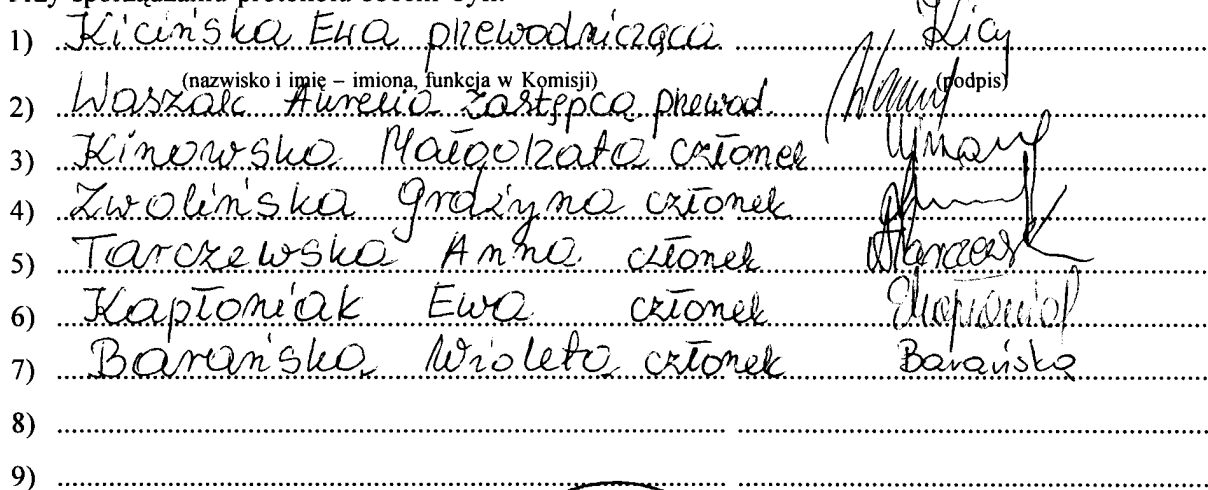 Przy sporządzaniu protokołu obecni byli:
1) Kicińska Ewa przewodnicząca
(nazwisko i imię – imiona, funkcja w Komisji) (podpis)
2) Waszak Aurelia zastępca przewod.
3) Kinowska Małgorzata członek
4) Zwolińska Grażyna członek
5) Tarczewska Anna członek
6) Kapłoniak Ewa członek EKapłoniak
7) Barańska Wioleta członek Barańska
8)
9)